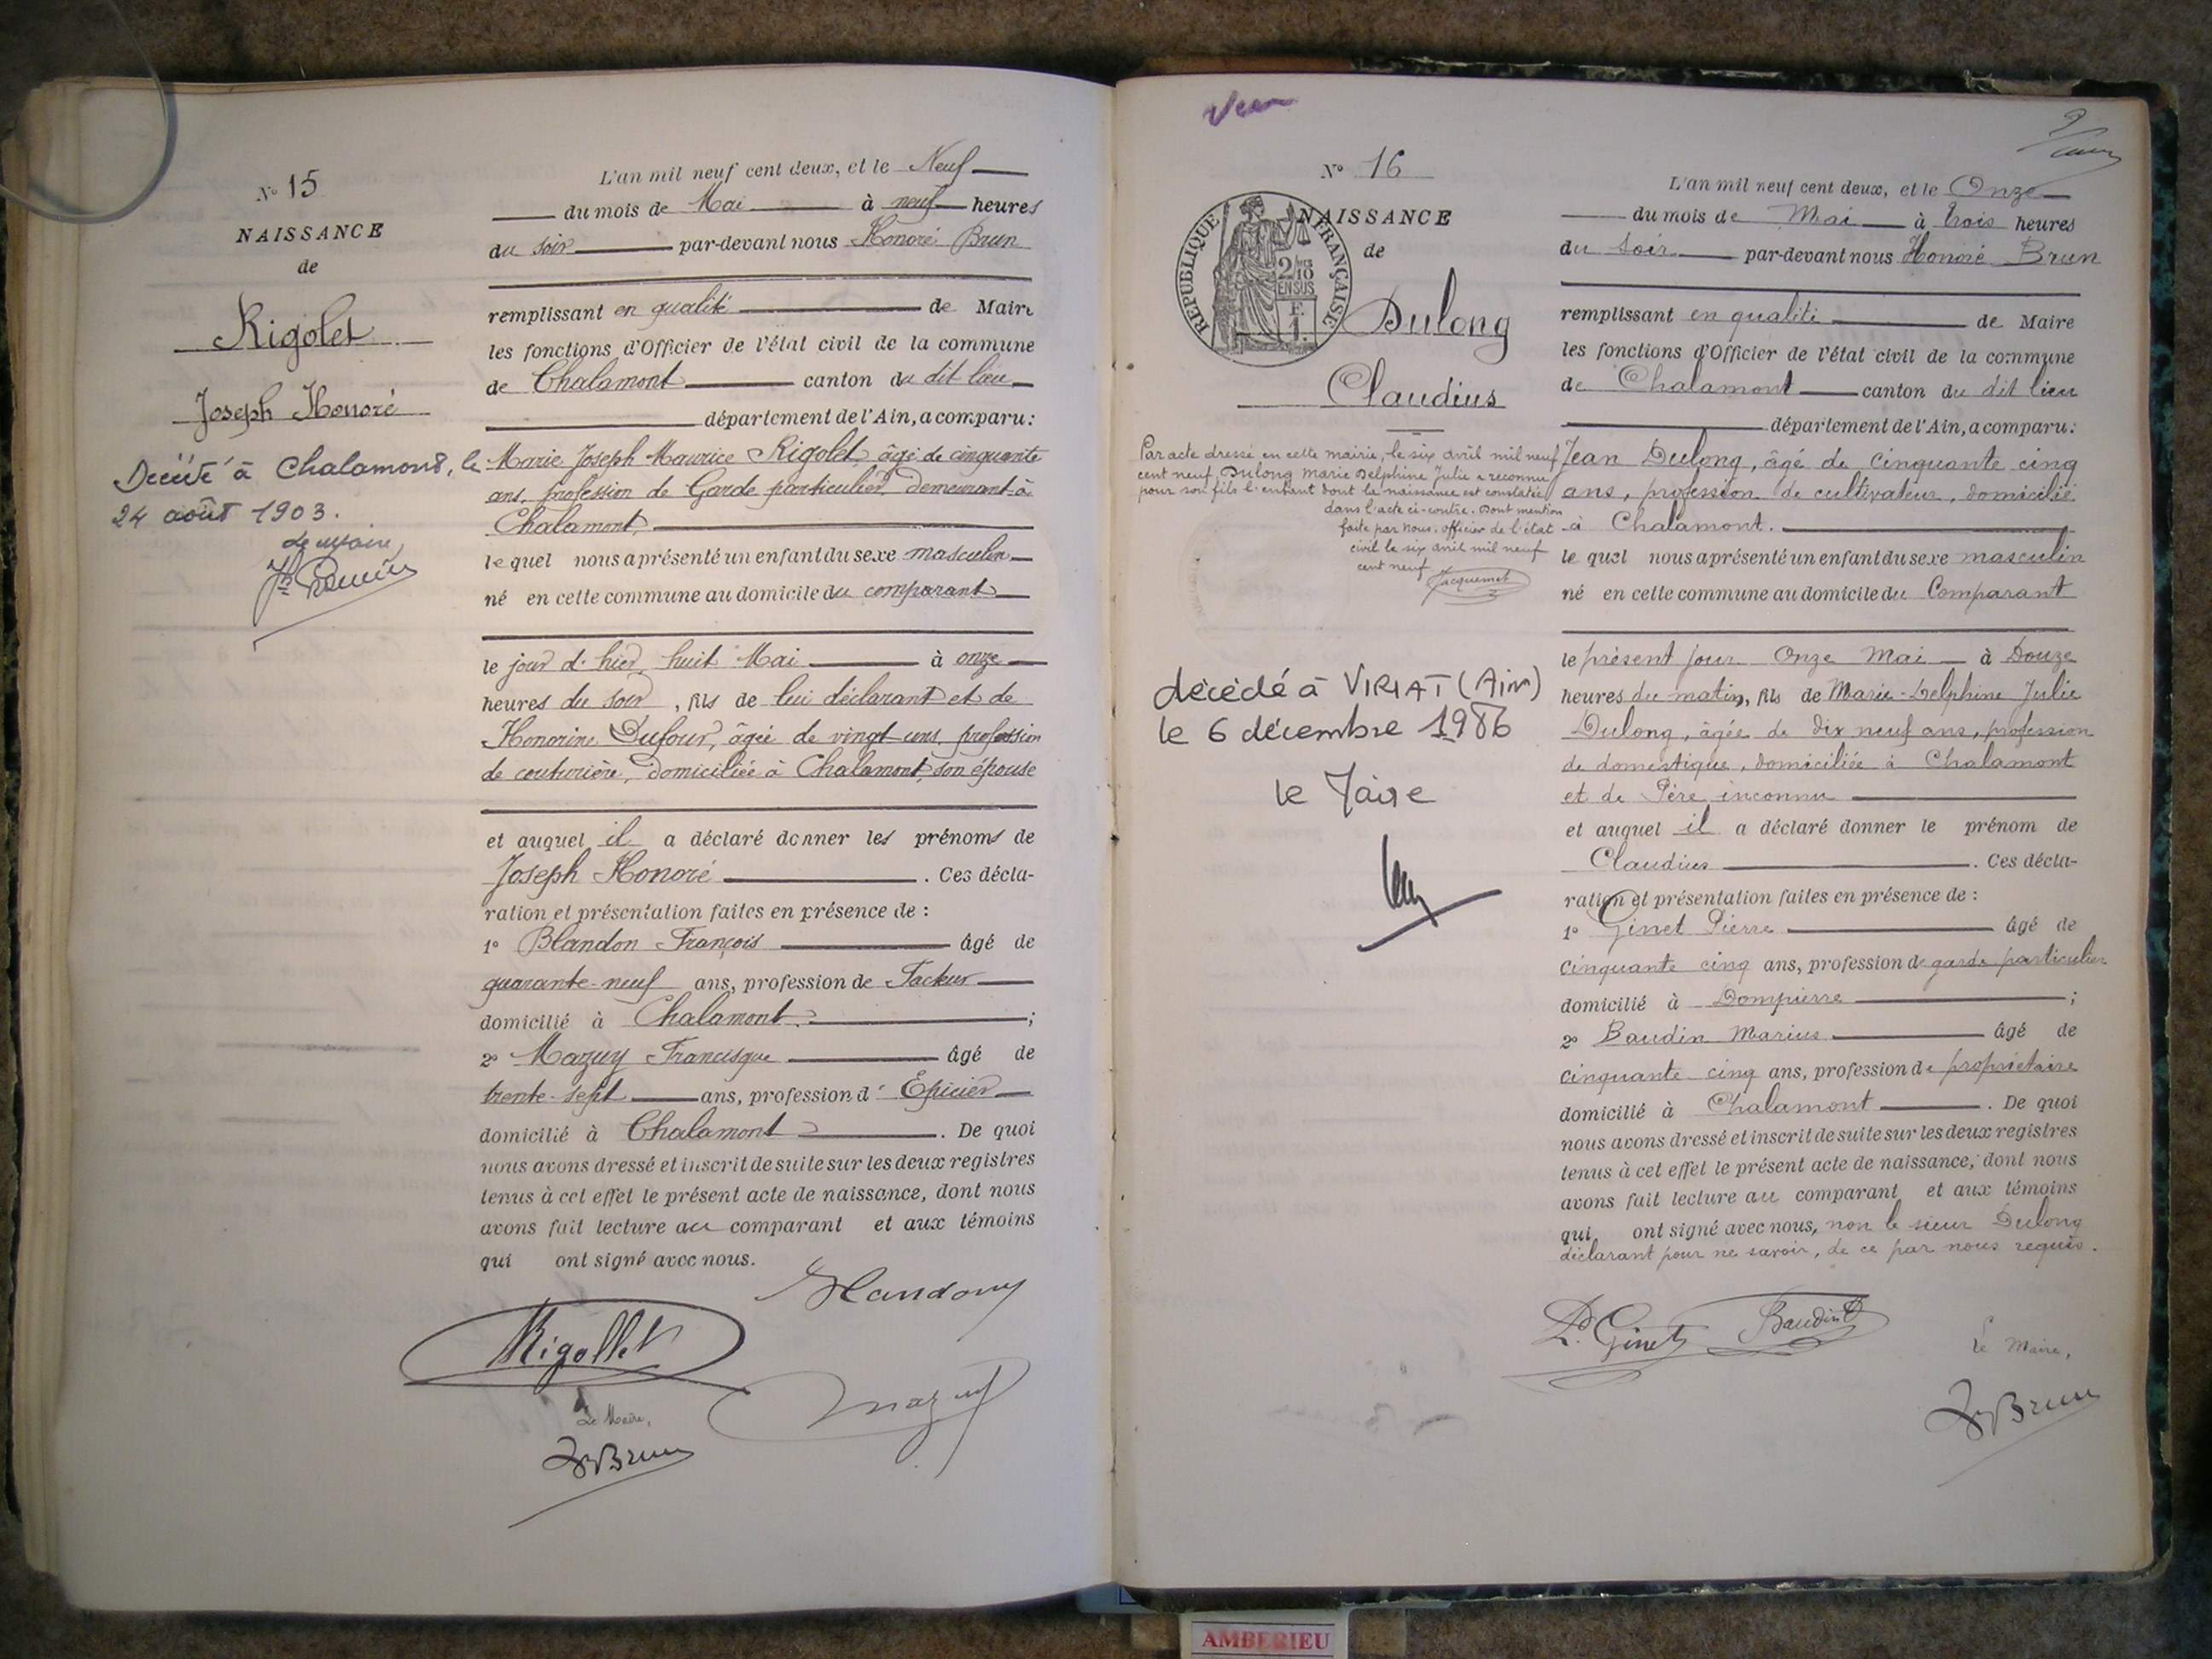 N° 15
NAISSANCE
de
Rigolet
Joseph Honoré
Décédé à Chalamont, le
24 août 1903.
Le maire,
L'an mil neuf cent deux, et le Neuf
du mois de Mai à neuf heures
du soir par-devant nous Honoré Brun
remplissant en qualité de Maire
les fonctions d'Officier de l'état civil de la commune
de Chalamont canton du dit lieu
département de l'Ain, a comparu:
Marie Joseph Maurice Rigolet, âgé de cinquante
ans, profession de Garde particulier, demeurant à
Chalamont,
lequel nous a présenté un enfant du sexe masculin
né en cette commune au domicile du comparant
le jour d'hier, huit Mai à onze
heures du soir, fils de lui déclarant et de
Honorine Dufour, âgée de vingt ans, profession
de couturière, domiciliée à Chalamont, son épouse
et auquel il a déclaré donner les prénoms de
Joseph Honoré. Ces décla-
ration et présentation faites en présence de :
1° Blandon François âgé de
quarante-neuf ans, profession de Facteur
domicilié à Chalamont ;
2° Mazuy Francisque âgé de
trente-sept ans, profession d' Épicier
domicilié à Chalamont. De quoi
nous avons dressé et inscrit de suite sur les deux registres
tenus à cet effet le présent acte de naissance, dont nous
avons fait lecture au comparant et aux témoins
qui ont signé avec nous.
Blandon
Rigollet
Mazuy
Le Maire,
H Brun
Vu
N° 16
RÉPUBLIQUE FRANÇAISE
2/10 EN SUS
F.
1.
NAISSANCE
de
Dulong
Claudius
Par acte dressé en cette mairie, le six avril mil neuf
cent neuf Dulong Marie Delphine Julie a reconnu
pour son fils l'enfant dont la naissance est constatée
dans l'acte ci-contre. Dont mention
faite par nous, officier de l'état
civil le six avril mil neuf
cent neuf
Jacquemet
décédé à VIRIAT (Ain)
le 6 décembre 1986
le Maire
L'an mil neuf cent deux, et le Onze
du mois de Mai à trois heures
du soir par-devant nous Honoré Brun
remplissant en qualité de Maire
les fonctions d'Officier de l'état civil de la commune
de Chalamont canton du dit lieu
département de l'Ain, a comparu:
Jean Dulong, âgé de cinquante cinq
ans, profession de cultivateur, domicilié
à Chalamont.
lequel nous a présenté un enfant du sexe masculin
né en cette commune au domicile du Comparant
le présent jour Onze Mai à Douze
heures du matin, fils de Marie-Delphine Julie
Dulong, âgée de dix neuf ans, profession
de domestique, domiciliée à Chalamont
et de Père inconnu
et auquel il a déclaré donner le prénom de
Claudius. Ces décla-
ration et présentation faites en présence de :
1° Ginet Pierre âgé de
cinquante cinq ans, profession de garde particulier
domicilié à Dompierre ;
2° Baudin Marius âgé de
cinquante cinq ans, profession de propriétaire
domicilié à Chalamont. De quoi
nous avons dressé et inscrit de suite sur les deux registres
tenus à cet effet le présent acte de naissance, dont nous
avons fait lecture au comparant et aux témoins
qui ont signé avec nous, non le sieur Dulong
déclarant pour ne savoir, de ce par nous requis.
P. Ginet
Baudin
Le Maire,
H Brun
AMBERIEU